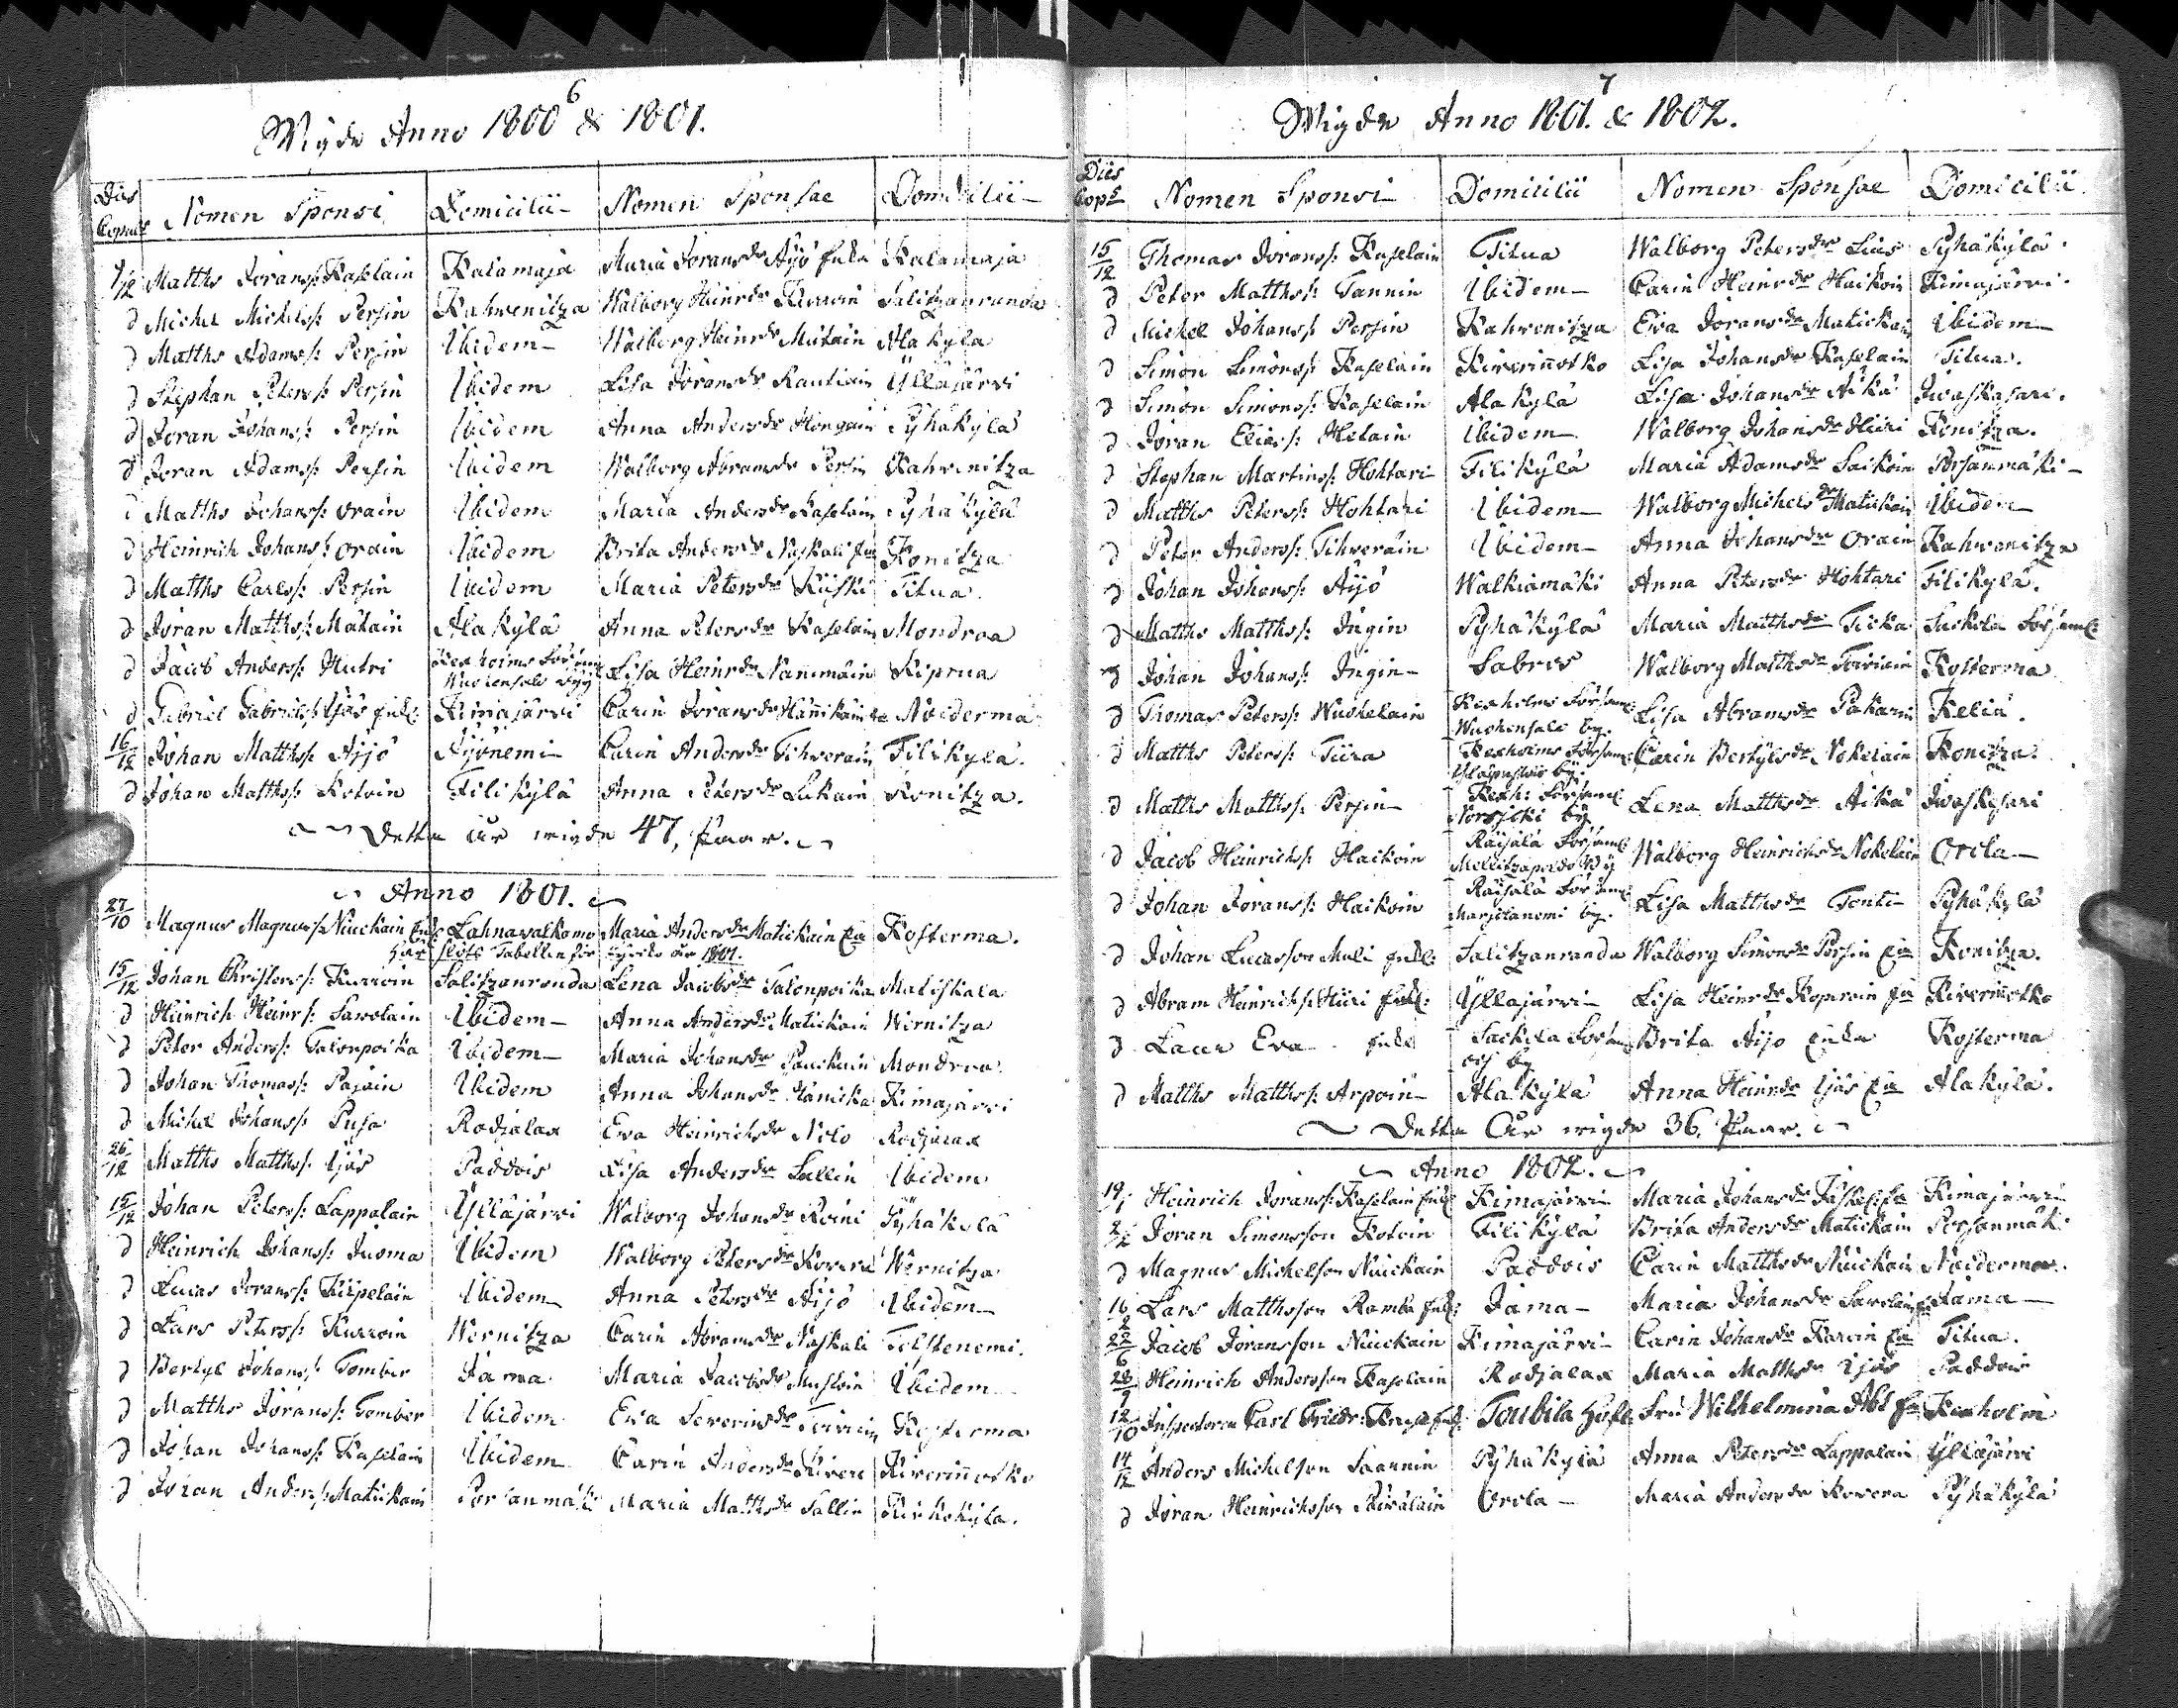 6
Wigde Anno 1800 & 1801.
Dies Copulae Nomen Sponsi Domicilii Nomen Sponsae Domicilii
7/12 Matths Joranss: Kaselain Kalamaja Maria Joransdr Äyö fula Kalamaja
d Michel Michelss: Persin Kahwenitza Walborg Heinrdr Kurroin Salitzanranda
d Matths Adamss: Persin Ibidem Walborg Heinrdr Mutain Alakyla
d Stephan Peterss: Persin Ibidem Lisa Joransdr Rautiain Ylläjärvi
d Joran Johanss: Persin Ibidem Anna Andersdr Hongain Pyhäkylä
d Joran Adamss: Persin Ibidem Walborg Abramsdr Persin Kahvenitza
d Matths Johanss: Orain Ibidem Maria Andersdr Kaselain Pyhäkylä
d Heinrich Johanss: Orain Ibidem Brita Andersdr Naskali Konitza
d Matths Carlss: Persin Ibidem Maria Petersdr Kiiski Titua
d Joran Matthss: Mätäin Alakylä Anna Petersdr Kaselain Mondroa
d Jacob Anderss: Hutri Kexholms Försam: Wuohensalo by Lisa Heinrdr Nammain Riprua
d Gabriel Gabrielss: Ijäs fult Rimajärvi Carin Joransdr Hannikain Noiderma
16/12 Johan Matthss: Äijö Äyönemi Carin Andersdr Tihverain Tilikylä.
d Johan Matthss: Kotoin Tilikylä Anna Petersdr Lukain Konitza.
Detta år wigde 47, Paar.
Anno 1801.
27/10 Magnus Magnuss: Niuckain Lahnavalkama Maria Andersdr Matickain Kosterma.
här slöts Tabellen för år 1801.
15/12 Johan Christerss: Kurroin Salitzanranda Lena Jacobsdr Talonpoika Matiskala
d Heinrich Heinrs: Savolain Ibidem Anna Andersdr Matickain Wernitza
d Peter Anderss: Talonpoika Ibidem Maria Johansdr Pauckuin Mondroa
d Johan Thomass: Pajain Ibidem Anna Johansdr Hanicka Rimajärvi
d Michel Johanss: Pusa Rodjalax Ewa Heinrichsdr Nolo Rodjalax
26/12 Matths Matthss: Ijäs Paddois Lisa Andersdr Sallin Ibidem
15/12 Johan Peterss: Lappalain Ylläjärvi Walborg Johansdr Roini Pyhäkylä
d Heinrich Johanss: Juoma Ibidem Walborg Petersdr Rovera Wernitza
d Lucas Joranss: Kiipelain Ibidem Anna Petersdr Äijö Ibidem
d Lars Peterss: Kurroin Wernitza Carin Abramsdr Naskali Telstenemi.
d Bertyl Johanss: Tomber Jama Maria Jacobsdr Mustoin Ibidem
d Matths Joranss: Tomber Ibidem Ewa Severinsdr Toivoin Kosterma
d Johan Johanss: Kaselain Ibidem Carin Andersdr Kiveri Kiverinnotko
d Johan Anderss: Matickain Porsanmäki Maria Matthsdr Sallin Kirkokyla.
7
Wigde Anno 1801. & 1802.
Dies Cops Nomen Sponsi Domicilii Nomen Sponsae Domicilii
15/12 Thomas Joranss: Kaselain Titua Walborg Petersdr Lias Pyhäkylä.
d Peter Matthss: Tannin Ibidem Carin Heinrdr Haikoin Rimajärvi.
d Michel Johanss: Persin Kahvenitza Ewa Joransdr Matickain Ibidem
d Simon Simonss: Kaselain Kiverinnotko Lisa Johansdr Kaselain Titua.
d Simon Simonss: Kaselain Alakylä Lisa Johansdr Äikä Iwaskasari.
d Joran Eliass: Hetain Ibidem Walborg Johansdr Hiiri Konitza.
d Stephan Martinss: Hohtari Tilikylä Maria Adamsdr Saikoin Porsanmäki
d Matths Peterss: Hohtari Ibidem Walborg Michelsdr Matickain Ibidem
d Peter Anderss: Tihverain Ibidem Anna Johansdr Orain Kahvenitza
d Johan Johanss: Äijö Walkiamäki Anna Petersdr Hohtari Tilikylä.
d Matths Matthss: Ingin Pyhäkylä Maria Matthsdr Ticka Sackola Församl:
d Johan Johanss: Ingin Sabres Walborg Matthsdr Toivoin Kosterma
d Thomas Peterss: Wuohelain Kexholms Församl: Wuohensalo by. Lisa Abramsdr Pukarin Kelia.
d Matths Peterss: Tiira Kexholms Församl: by. Carin Bertylsdr Nokelain Konitza.
d Matths Matthss: Persin Kexh: Församl: Norsjoki by Lena Matthsdr Äikä Iwaskesari
d Jacob Heinrichss: Haikoin Räisälä Församl: Mellitzapeldo by Walborg Heinrichsdr Nokelain Orola
d Johan Joranss: Haikoin Räisälä Församl: Marjelanemi by. Lisa Matthsdr Tonti Pyhäkylä
d Johan Lucasson Muli fult: Salitzanranda Walborg Simonsdr Persin Konitza.
d Abram Heinrichss: Hiiri fult: Ylläjärvi Lisa Heinrdr Koproin Kiverinnotko
d Laur Eva fult Sackila Församl och by Brita Äijo enka Kosterma
d Matths Matthss: Arpoin Alakylä Anna Heinrdr Ijäs Alakylä.
Detta År wigde 36, Paar.
Anno 1802.
19/1 Heinrich Joranss: Kaselain fult Rimajärvi Maria Johansdr Rimajärvi
2/2 Joran Simonsson Kotoin Tilikylä Brita Andersdr Matickain Porsanmäki
d Magnus Michelson Niuckain Paddois Carin Matthsdr Niuckain Noiderma.
16/2 Lars Matthsson Ramba fult: Jama Maria Johansdr Savolain Jama
22/6 Jacob Joransson Niuckain Rimajärvi Carin Johansdr Karvin Titua.
28/9 Heinrich Andersson Kaselain Rodjalax Maria Matthsdr Ijäs Paddois
12/10 Inspectoren Carl Friedr: Toubila Hof Fru Wilhelmina Abl Kexholm
14/12 Anders Michelson Saannin Pyhäkylä Anna Petersdr Lappalain Ylläjärvi
d Joran Heinrichsson Orola Maria Andersdr Rovera Pyhäkylä